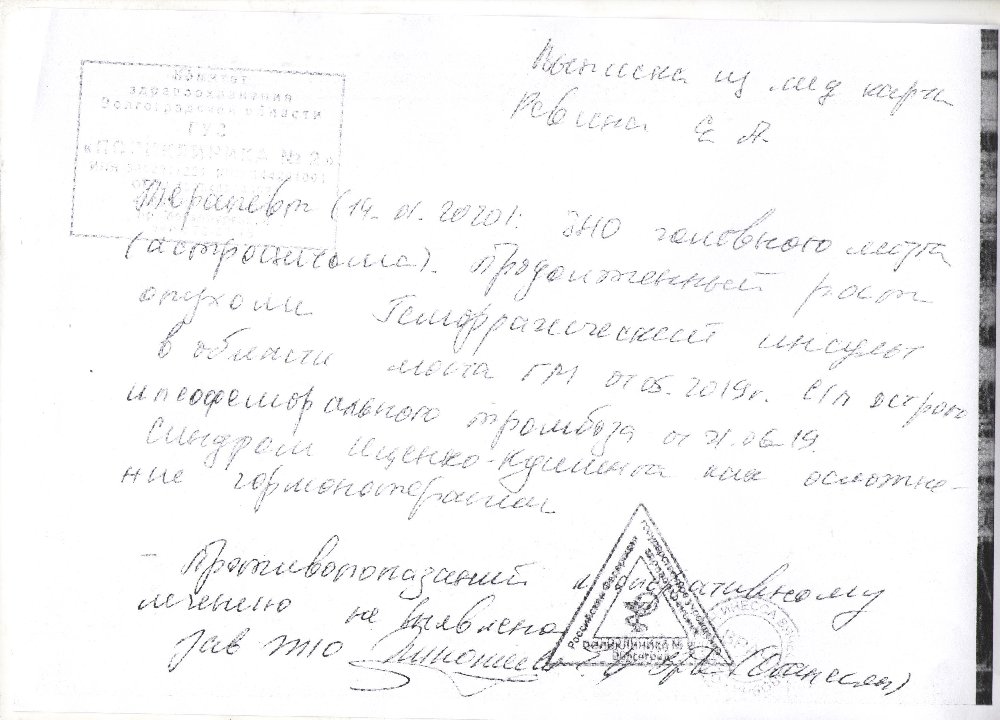 Выписка из мед карты
Ревина Е А.
Комитет
здравоохранения
Волгоградской области
ГУЗ
«ПОЛИКЛИНИКА № 2»
Терапевт (14.01.2020г. ЗНО головного мозга
(астроцитома). Продолженный рост
опухоли Геморрагический инсульт
в области моста ГМ от 05.2019г. С/п острого
илеофеморального тромбоза от 21.06.19.
Синдром Иценко-Кушинга как осложне-
ние гормонотерапии
- Противопоказаний к оперативному
лечению не выявлено
Зав ТЖО
Российская Федерация
ПОЛИКЛИНИКА №